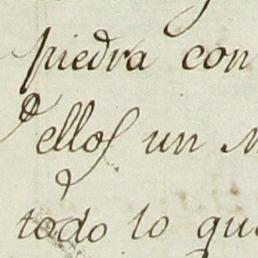 piedra con
ellos un
todo lo que